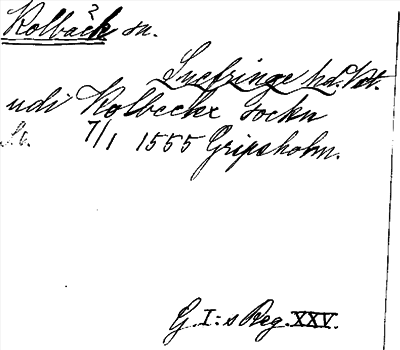 Kolbäck sn.
?
Snefringe hd. Vstm.
udi Kolbecke sockn
Sn. 7/1 1555 Gripsholm.
G. I:s Reg. XXV.